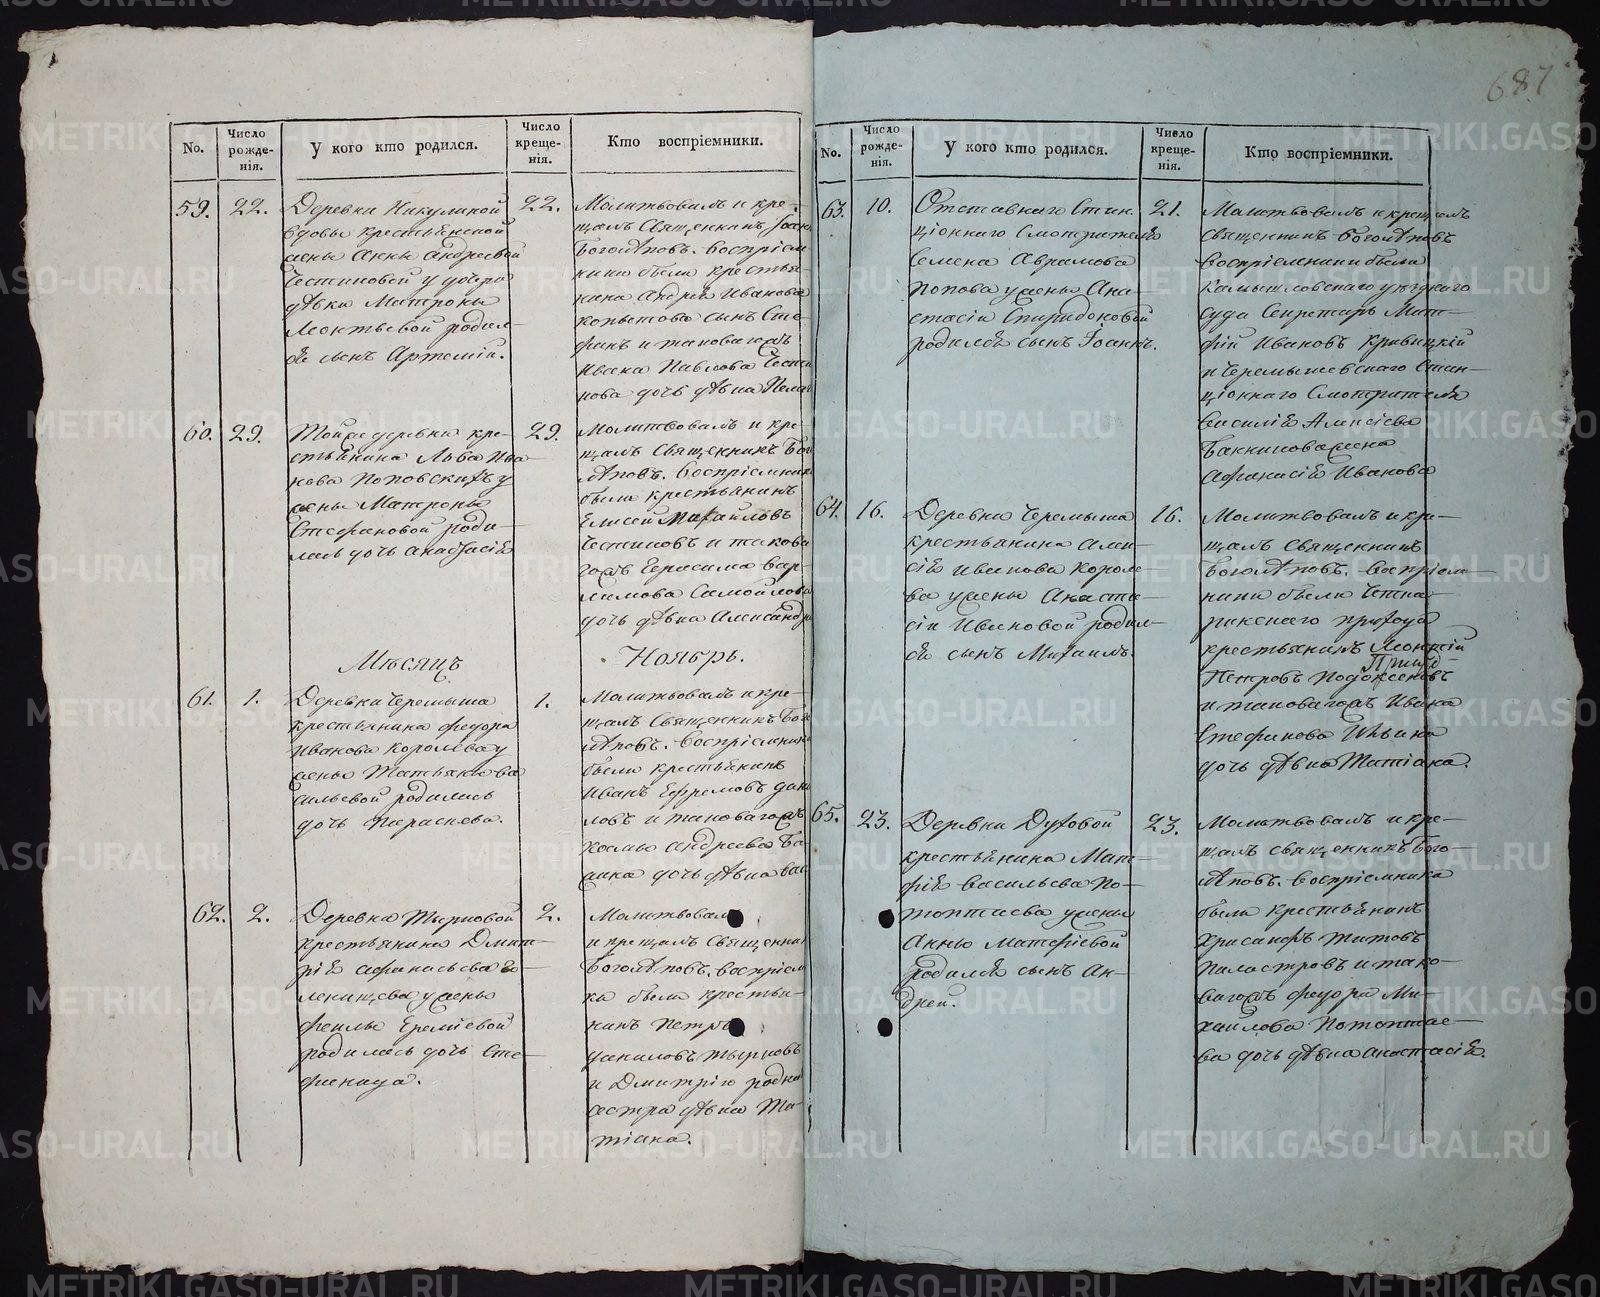 687
No.
Число рожде-нія.
У кого кто родился.
Число креще-нія.
Кто воспріемники.
59.
22.
Деревни Никулиной
вдовы крестьянской
жены Анны Андреевой
у дочери
дѣвки Матроны
Леонтьевой родил-
ся сынъ Артемій.
22.
Молитвовалъ и кре-
щалъ Священникъ
Боголѣповъ. Воспріем
ники были крестья-
нина Андрея Иванова
сынъ Сте-
фанъ и таковагожъ
Ивана Павлова
нова дочь дѣвка
60.
29.
Тойже деревни кре-
стьянина Льва Ива
нова Поповскихъ у
жены Матроны
Стефановой роди-
лась дочь Анастасія
29.
Молитвовалъ и кре-
щалъ Священникъ Бог
лѣповъ. Воспріемник
были крестьянинъ
Елисей Михайловъ
и такова
гожъ Герасима Вар-
ламова Самойлова
дочь дѣвка Александр
Мѣсяцъ
Ноябрь.
61.
1.
Деревни Черемыша
крестьянина Федора
Иванова Королева у
жены Татьяны Ва
сильевой родилась
дочь Параскева.
1.
Молитвовалъ и кре-
щалъ Священникъ Бог
лѣповъ. Воспріемники
были крестьянинъ
Иванъ Ефремовъ Дани
ловъ и таковагожъ
Козмы Андреева
дочь дѣвка
62.
2.
Деревни Тырковой
крестьянина Дмит-
рія Афанасьева Го-
ленищева у жены
Феклы Еремѣевой
родилась дочь Сте-
фанида.
2.
Молитвовалъ
и крещалъ Священник
Боголѣповъ. Воспріем
ки были крестья-
нинъ Петръ
Даниловъ Тырковъ
и Дмитрію родна
сестра дѣвка Та-
тіана.
No.
Число рожде-нія.
У кого кто родился.
Число креще-нія.
Кто воспріемники.
63.
10.
Отставнаго Стан
ціоннаго Смотрителя
Семена Аврамова
Попова у жены Ана
стасіи Спиридоновой
родился сынъ Іоаннъ.
21.
Молитвовалъ и крещалъ
Священникъ Боголѣповъ
Воспріемники были
Камышловскаго уѣзднаго
суда Секретарь Мат-
фій Ивановъ Кривицкій
и Черемышевскаго Стан-
ціоннаго Смотрителя
Василія Алексіева
Бакнинова жена
Афанасія Иванова
64.
16.
Деревни Черемыша
крестьянина Алек-
сія Иванова Короле-
ва у жены Анаста-
сіи Ивановой родил-
ся сынъ Михаилъ.
16.
Молитвовалъ и кре-
щалъ Священникъ
Боголѣповъ. Воспріем-
ники были Четка-
ринскаго прихода
крестьянинъ Леонтій
Петровъ
и таковагожъ Ивана
Стефанова Ильина
дочь дѣвка Татіана.
65.
23.
Деревни Духовой
крестьянина Мат-
фія Васильева По-
топтаева у жены
Анны Матфіевой
родился сынъ Ан-
дрей.
23.
Молитвовалъ и кре-
щалъ священникъ Бого-
лѣповъ. Воспріемника
были крестьянинъ
Хрисанфъ Титовъ
Паластровъ и тако-
вагожъ Федора Ми-
хайлова Потоптае-
ва дочь дѣвка Анастасія.
METRIKI.GASO-URAL.RU